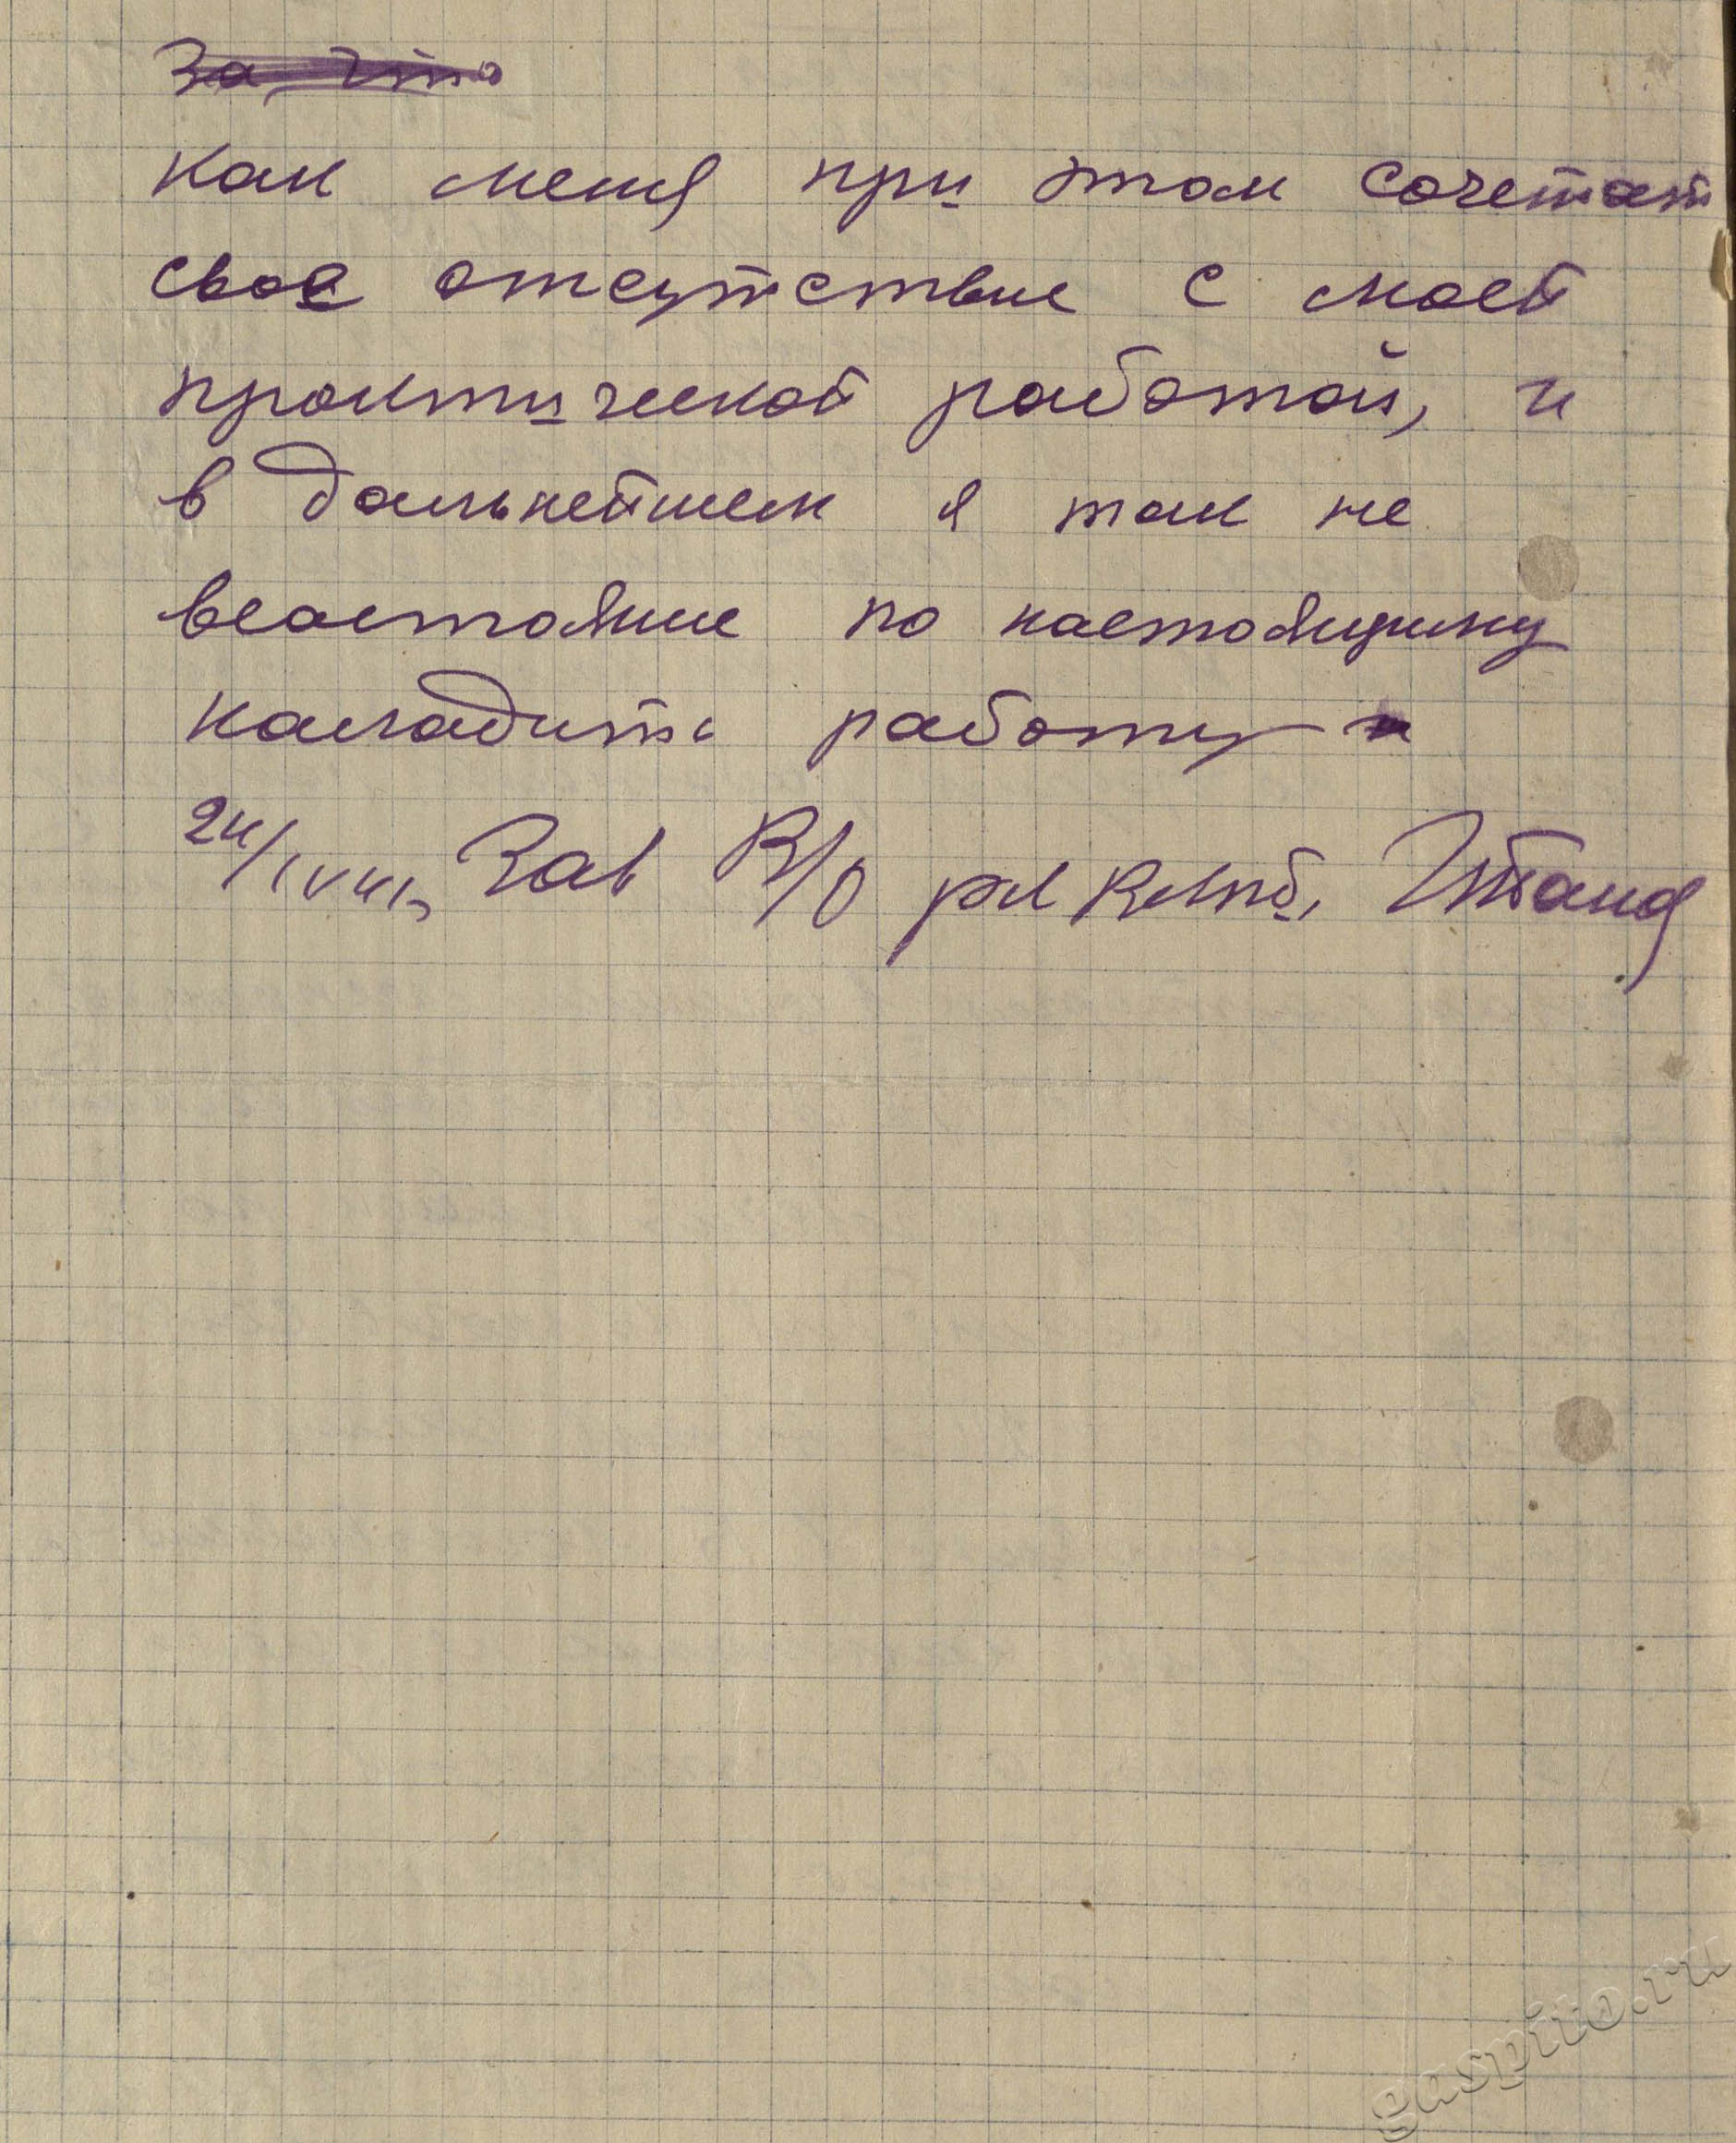 За что
как меня при этом сочетат
свое отсутствие с моей
практической работой, и
в дальнейшем я так не
всостояние по настоящиму
наладить работу
Зав В/О
gaspito.ru